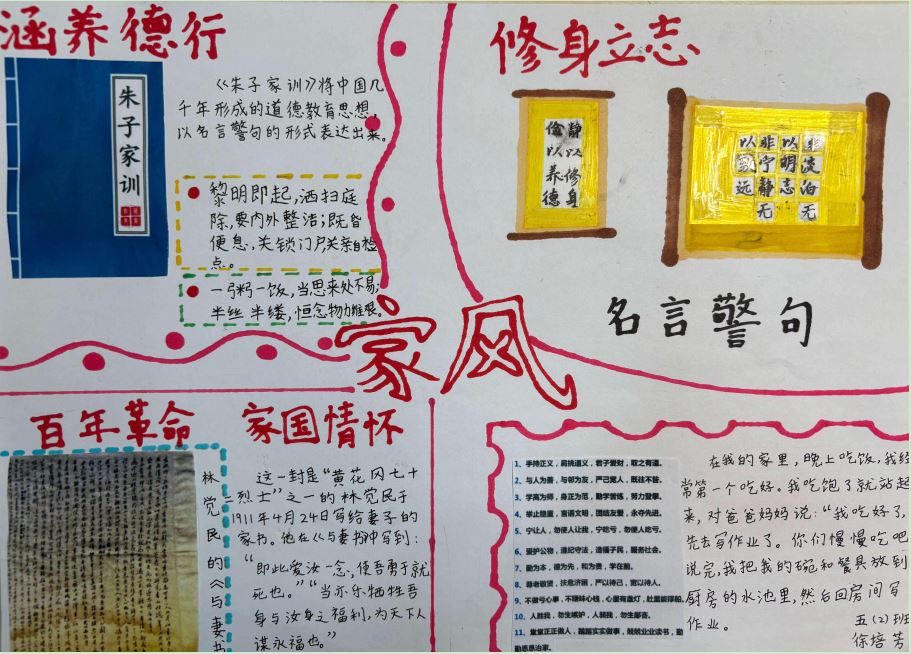 涵养德行
朱子家训
《朱子家训》将中国几
千年形成的道德教育思想,
以名言警句的形式表达出来。
黎明即起,洒扫庭
除,要内外整洁;既昏
便息,关锁门户关亲自检
点。
一粥一饭,当思来处不易;
半丝半缕,恒念物力维艰。
修身立志
静以修身
俭以养德
非淡泊无
以明志
非宁静无
以致远
名言警句
家风
百年革命 家国情怀
林觉民的《与妻书
这一封是“黄花冈七十
二烈士”之一的林觉民于
1911年4月24日写给妻子的
家书。他在《与妻书》中写到:
“即此爱汝一念,使吾勇于就
死也。”“当亦乐牺牲吾
身与汝身之福利,为天下人
谋永福也。”
1、手持正义,肩挑道义,君子爱财,取之有道。
2、与人为善,与邻为友,严己宽人,既往不咎。
3、学高为师,身正为范,勤学苦练,努力登攀。
4、举止稳重,言语文明,团结友爱,永夺先进。
5、宁让人,勿使人让我,宁吃亏,勿使人吃亏。
6、爱护公物,遵纪守法,造福子民,服务社会。
7、勤为本,德为先,和为贵,学在前。
8、尊老敬贤,扶危济困,严以待己,宽以待人。
9、不做亏心事,不赚昧心钱,心里有盏灯,肚里能撑船。
10、人胜我,勿生嫉妒,人弱我,勿生鄙吝。
11、堂堂正正做人,踏踏实实做事,兢兢业业读书,勤
勤恳恳治家。
在我的家里,晚上吃饭,我经
常第一个吃好。我吃饱了就站起
来,对爸爸妈妈说:“我吃好了,
先去写作业了。你们慢慢吃吧
说完,我把我的碗和餐具放到
厨房的水池里,然后回房间写
作业。
五(2)班
徐培芳